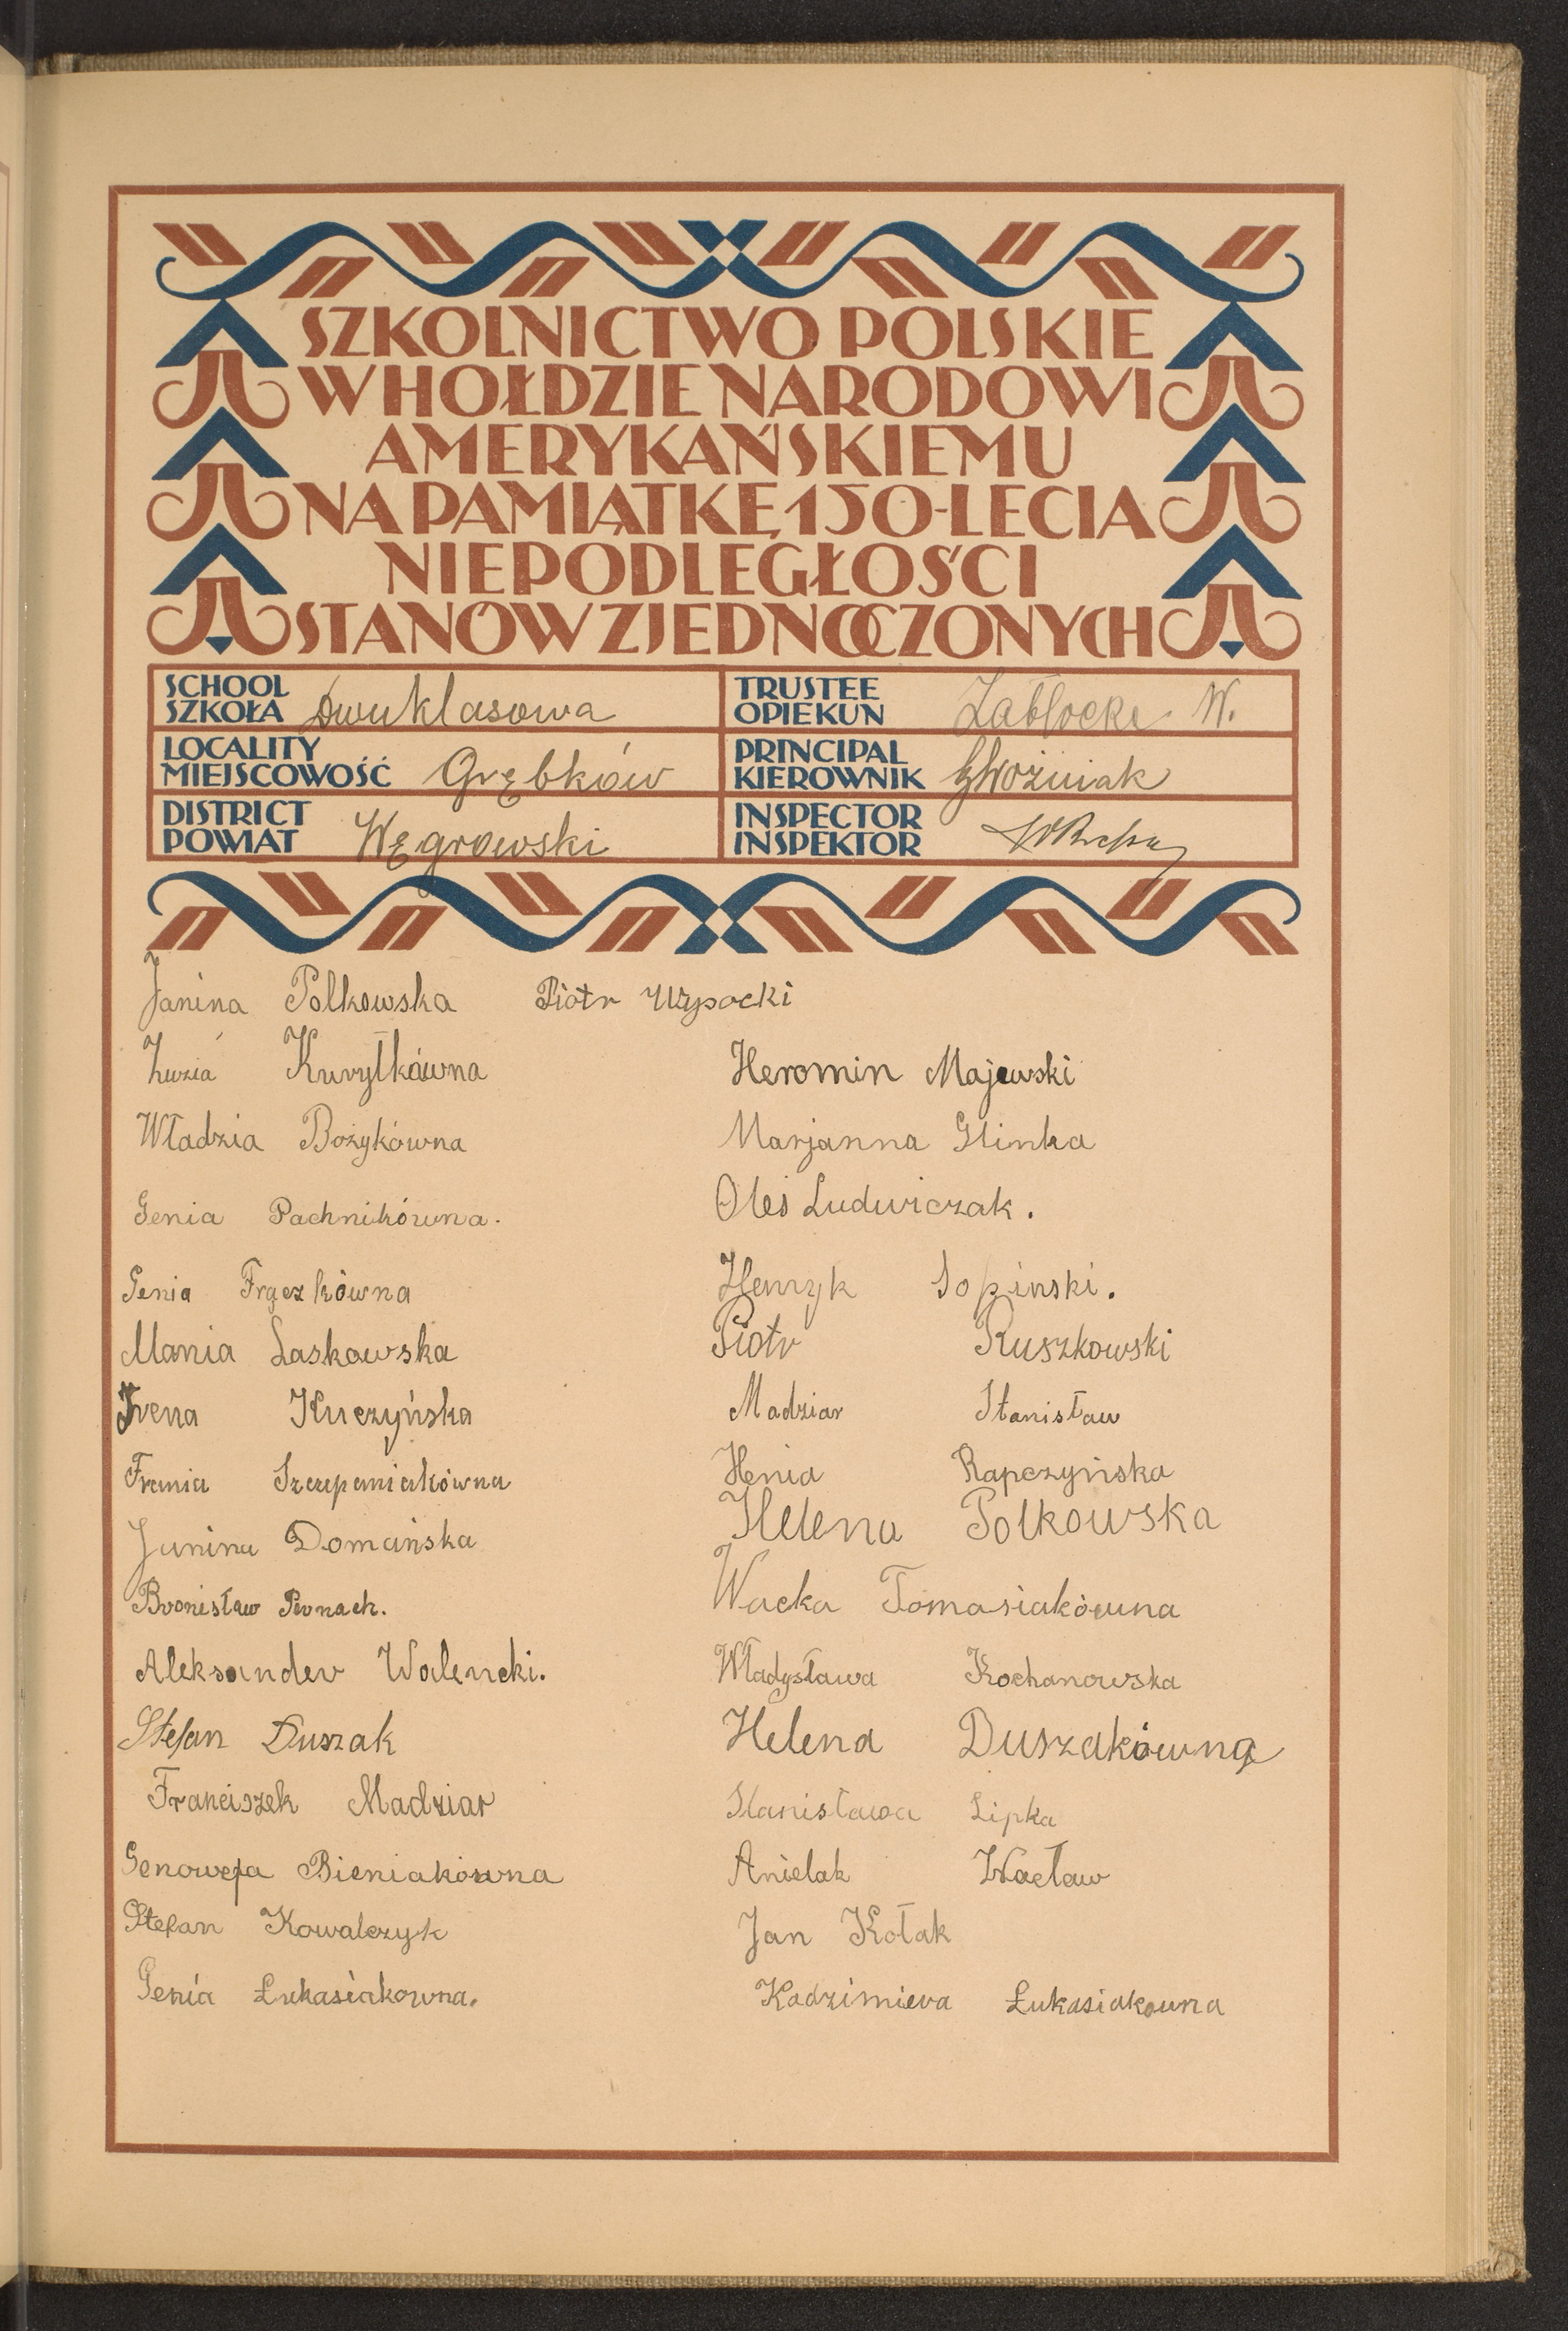 SZKOLNICTWO POLSKIE
W HOŁDZIE NARODOWI
AMERYKAŃSKIEMU
NA PAMIĄTKĘ 150-LECIA
NIEPODLEGŁOŚCI
STANÓW ZJEDNOCZONYCH
SCHOOL
SZKOŁA Dwuklasowa
TRUSTEE
OPIEKUN Zabłocki W.
LOCALITY
MIEJSCOWOŚĆ Grębków
PRINCIPAL
KIEROWNIK Woźniak
DISTRICT
POWIAT Węgrowski
INSPECTOR
INSPEKTOR
Janina Polkowska Piotr Wysocki
Zuzia Kurytkówna
Władzia Bożykówna
Genia Pachnikówna.
Genia Frączkówna
Mania Laskowska
Irena Kuczyńska
Frania Szczepaniakówna
Janina Domańska
Bronisław Pernach.
Aleksander Walencki.
Stefan Duszak
Franciszek Madziar
Genowefa Bieniakówna
Stefan Kowalczyk
Genia Łukasiakowna.
Heromin Majewski
Marjanna Glinka
Oleś Ludwiczak.
Henryk Sopinski.
Piotr Ruszkowski
Madziar Stanisław
Henia Rapczyńska
Helena Polkowska
Wacka Tomasiakówna
Władysława Kochanowska
Helena Duszakówna
Stanisława Lipka
Anielak Wacław
Jan Kołak
Kadzimiera Łukasiakowna